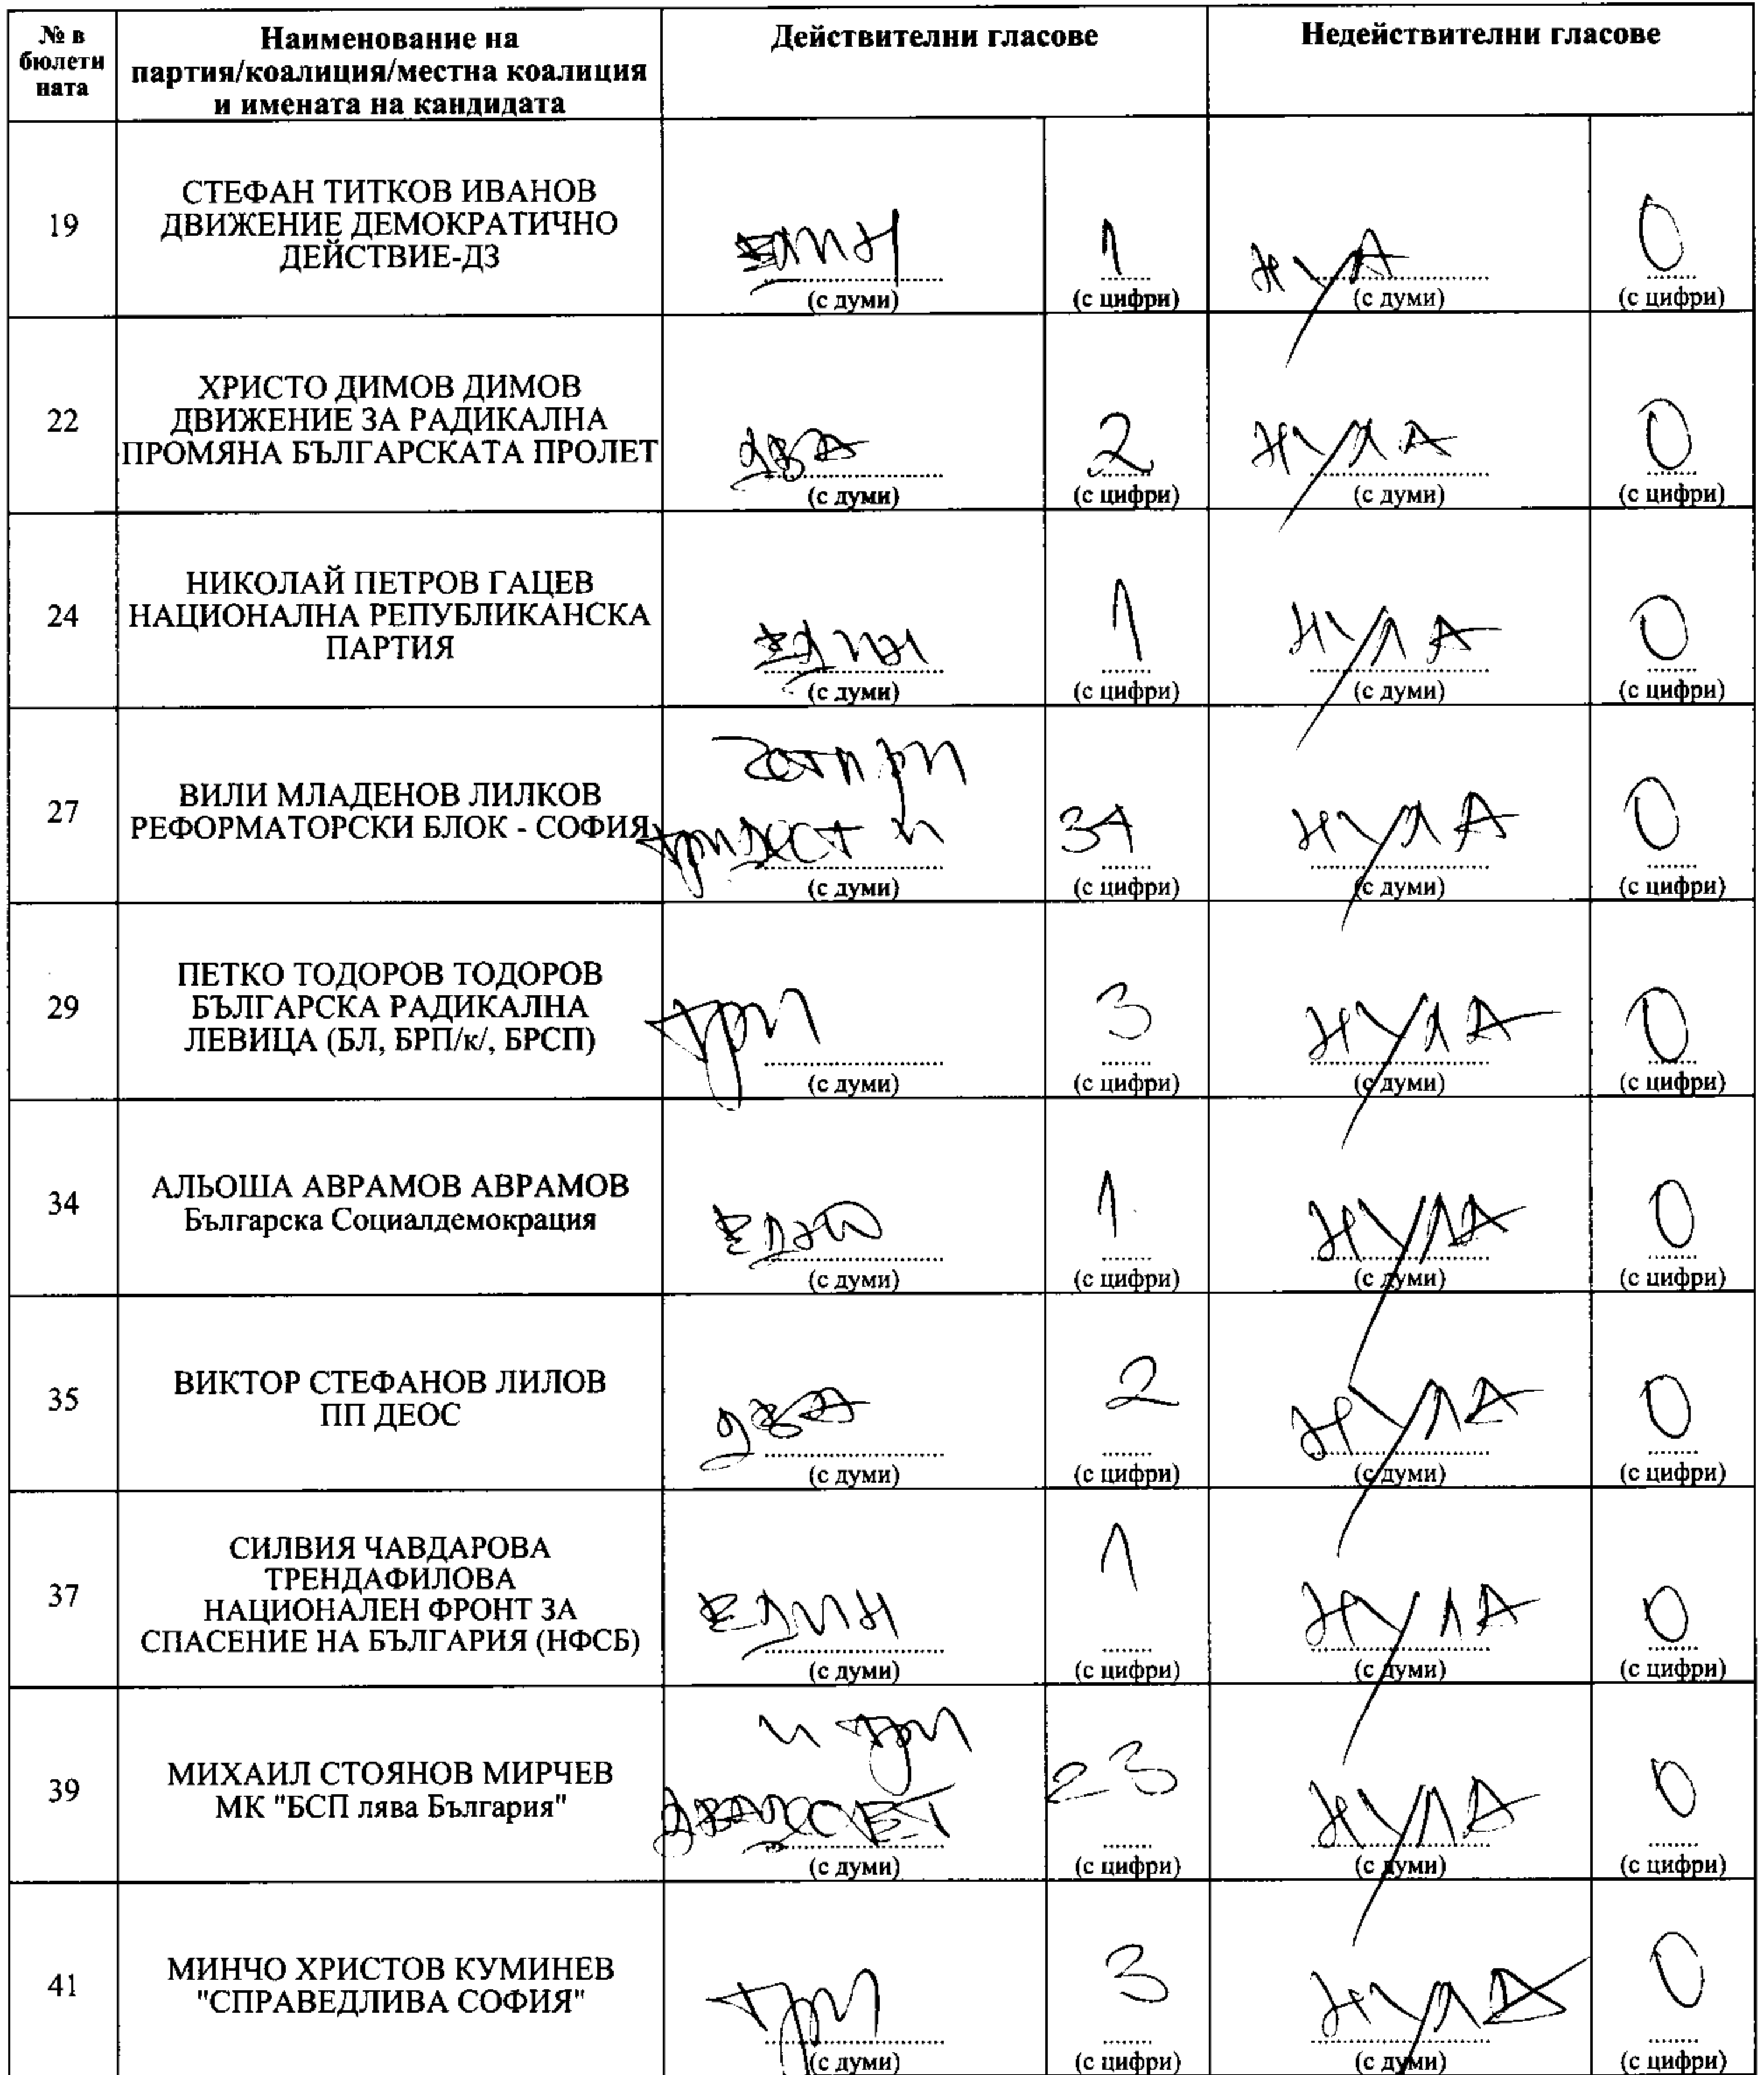 № в бюлети ната
Наименование на партия/коалиция/местна коалиция и имената на кандидата
Действителни гласове
Недействителни гласове
19
СТЕФАН ТИТКОВ ИВАНОВ
ДВИЖЕНИЕ ДЕМОКРАТИЧНО
ДЕЙСТВИЕ-ДЗ
един
(с думи)
1
(с цифри)
нула
(с думи)
0
(с цифри)
22
ХРИСТО ДИМОВ ДИМОВ
ДВИЖЕНИЕ ЗА РАДИКАЛНА
ПРОМЯНА БЪЛГАРСКАТА ПРОЛЕТ
два
(с думи)
2
(с цифри)
нула
(с думи)
0
(с цифри)
24
НИКОЛАЙ ПЕТРОВ ГАЦЕВ
НАЦИОНАЛНА РЕПУБЛИКАНСКА
ПАРТИЯ
един
(с думи)
1
(с цифри)
нула
(с думи)
0
(с цифри)
27
ВИЛИ МЛАДЕНОВ ЛИЛКОВ
РЕФОРМАТОРСКИ БЛОК - СОФИЯ
тридест и
четири
(с думи)
34
(с цифри)
нула
(с думи)
0
(с цифри)
29
ПЕТКО ТОДОРОВ ТОДОРОВ
БЪЛГАРСКА РАДИКАЛНА
ЛЕВИЦА (БЛ, БРП/к/, БРСП)
три
(с думи)
3
(с цифри)
нула
(с думи)
0
(с цифри)
34
АЛЬОША АВРАМОВ АВРАМОВ
Българска Социалдемокрация
(с думи)
1
(с цифри)
нула
(с думи)
0
(с цифри)
35
ВИКТОР СТЕФАНОВ ЛИЛОВ
ПП ДЕОС
два
(с думи)
2
(с цифри)
нула
(с думи)
0
(с цифри)
37
СИЛВИЯ ЧАВДАРОВА
ТРЕНДАФИЛОВА
НАЦИОНАЛЕН ФРОНТ ЗА
СПАСЕНИЕ НА БЪЛГАРИЯ (НФСБ)
един
(с думи)
1
(с цифри)
нула
(с думи)
0
(с цифри)
39
МИХАИЛ СТОЯНОВ МИРЧЕВ
МК "БСП лява България"
двадесет
и три
(с думи)
23
(с цифри)
нула
(с думи)
0
(с цифри)
41
МИНЧО ХРИСТОВ КУМИНЕВ
"СПРАВЕДЛИВА СОФИЯ"
три
(с думи)
3
(с цифри)
нула
(с думи)
0
(с цифри)